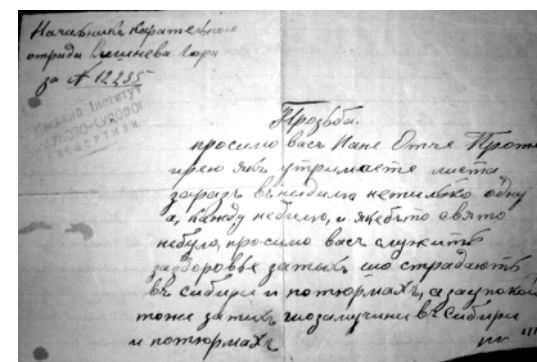 Начальникъ Карательного
отряда Вишнева Гора
за № 12235
ІНСТИТУТ
НАУКОВО-СУДОВОЇ
ЕКСПЕРТИЗИ
Прозьба.
просимо васъ Пане Отче Прото
ирею якъ утримаете листа
заразъ въ недилю нетилько одну
а, каждую недилю, и якебыто свято
небуло, просимо васъ служить
заздоровье затыхъ шо страдають
въ сибири и потюрмахъ, азаупокой
тоже затихъ шозамучини въ сибири
и потюрмахъ